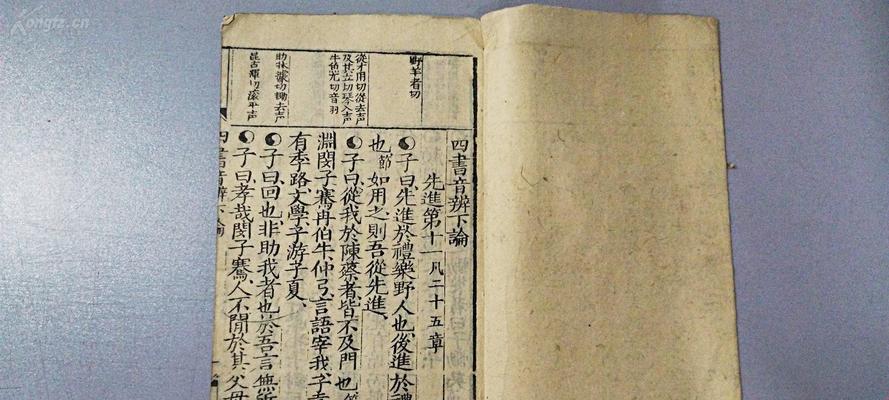 Kongfz.cn
野羊者切
從才用切從去声
及其立切琴入声
牛伯尤切音羽
助床據切鋤去声
昆古渾切滚平声
四書音辨下論
先進第十一凡二十五章
子曰先進於禮樂野人也後進於禮
也節如用之則吾從先進
子曰從我於陳蔡者皆不及門也節
淵閔子騫冉伯牛仲弓言語宰我子貢
有季路文學子游子夏
子曰回也非助我者也於吾言無所
子曰孝哉閔子騫人不間於其父母
四書音辨下論